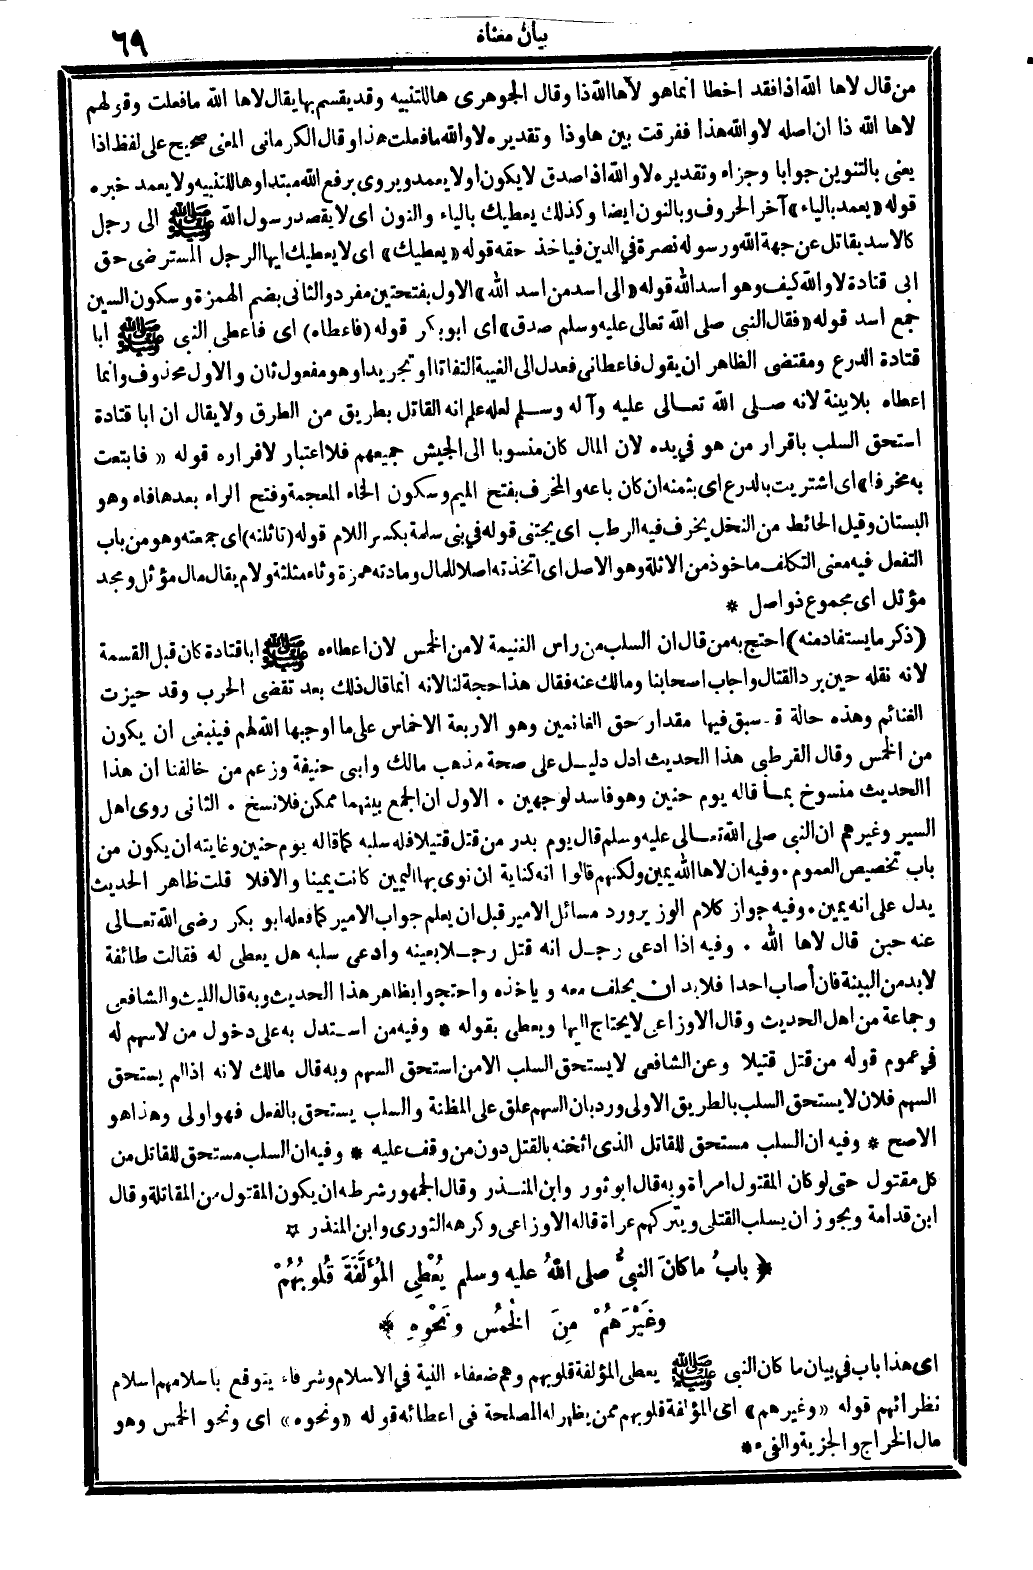 بيان معناه
٦٩
من قال لاها الله اذا فقد اخطا انما هو لاها الله ذا وقال الجوهري ها للتنبيه وقد يقسم بها يقال لاها الله مافعلت وقولهم
لاها الله ذا ان اصله لا والله هذا ففرقت بين ها وذا وتقديره لا والله مافعلت هذا وقال الكرماني المعنى صحيح على لفظ اذا
يعني بالتنوين جوابا وجزاء وتقديره لا والله اذا صدق لا يكون او لا يعمد ويروى برفع الله مبتدا وها للتنبيه ولا يعمد خبره
قوله «يعمد بالياء» آخر الحروف وبالنون ايضا وكذلك يعطيك بالياء والنون اى لا يقصد رسول الله ﷺ الى رجل
كالاسد يقاتل عن جهة الله ورسوله نصرة في الدين فياخذ حقه قوله «يعطيك» اى لا يعطيك ايها الرجل المسترضى حق
ابى قتادة لا والله كيف وهو اسد الله قوله «الى اسد من اسد الله» الاول بفتحتين مفرد والثانى بضم الهمزة وسكون السين
جمع اسد قوله «فقال النبى صلى الله تعالى عليه وسلم صدق» اى ابو بكر قوله (فاعطاه) اى فاعطى النبى ﷺ ابا
قتادة الدرع ومقتضى الظاهر ان يقول فاعطانى فعدل الى الغيبة التفاتا او تجريدا وهو مفعول ثان والاول محذوف وانما
اعطاه بلا بينة لانه صلى الله تعالى عليه وآله وسلم لعله علم انه القاتل بطريق من الطرق ولا يقال ان ابا قتادة
استحق السلب باقرار من هو في يده لان المال كان منسوبا الى الجيش جميعهم فلا اعتبار لاقراره قوله «فابتعت
به مخرفا» اى اشتريت بالدرع اى بثمنه ان كان باعه والمخرف بفتح الميم وسكون الخاء المعجمة وفتح الراء بعدها فاء وهو
البستان وقيل الحائط من النخل يخرف فيه الرطب اى يجتنى قوله في بنى سلمة بكسر اللام قوله (تاثلته) اى جمعته وهو من باب
التفعل فيه معنى التكلف ماخوذ من الاثلة وهو الاصل اى اتخذته اصلا للمال ومادته همزة وثاء مثلثة ولام يقال مال مؤثل ومجد
مؤثل اى مجموع ذو اصل *
(ذكر ما يستفاد منه) احتج به من قال ان السلب من راس الغنيمة لا من الخمس لان اعطاءه ﷺ ابا قتادة كان قبل القسمة
لانه نقله حين برد القتال واجاب اصحابنا ومالك عنه فقال هذا حجة لنا لانه انما قال ذلك بعد تقضى الحرب وقد حيزت
الغنائم وهذه حالة قد سبق فيها مقدار حق الغانمين وهو الاربعة الاخماس على ما اوجبها الله لهم فينبغى ان يكون
من الخمس وقال القرطبى هذا الحديث ادل دليل على صحة مذهب مالك وابى حنيفة وزعم من خالفنا ان هذا
الحديث منسوخ بما قاله يوم حنين وهو فاسد لوجهين . الاول ان الجمع بينهما ممكن فلا نسخ . الثانى روى اهل
السير وغيرهم ان النبى صلى الله تعالى عليه وسلم قال يوم بدر من قتل قتيلا فله سلبه كما قاله يوم حنين وغايته ان يكون من
باب تخصيص العموم . وفيه ان لاها الله يمين ولكنهم قالوا انه كناية ان نوى بها اليمين كانت يمينا والا فلا قلت ظاهر الحديث
يدل على انه يمين . وفيه جواز كلام الوزير ورد مسائل الامير قبل ان يعلم جواب الامير كما فعله ابو بكر رضى الله تعالى
عنه حين قال لاها الله . وفيه اذا ادعى رجل انه قتل رجلا بعينه وادعى سلبه هل يعطى له فقالت طائفة
لا بد من البينة فان أصاب احدا فلا بد ان يحلف معه وياخذه واحتجوا بظاهر هذا الحديث وبه قال الليث والشافعى
وجماعة من اهل الحديث وقال الاوزاعى لا يحتاج اليها ويعطى بقوله * وفيه من استدل به على دخول من لا سهم له
في عموم قوله من قتل قتيلا وعن الشافعى لا يستحق السلب الا من استحق السهم وبه قال مالك لانه اذا لم يستحق
السهم فلان لا يستحق السلب بالطريق الاولى ورد بان السهم علق على المظنة والسلب يستحق بالفعل فهو اولى وهذا هو
الاصح * وفيه ان السلب مستحق للقاتل الذى اثخنه بالقتل دون من وقف عليه * وفيه ان السلب مستحق للقاتل من
كل مقتول حتى لو كان المقتول امراة وبه قال ابو ثور وابن المنذر وقال الجمهور شرطه ان يكون المقتول من المقاتلة وقال
ابن قدامة ويجوز ان يسلب القتلى ويتركهم عراة قاله الاوزاعى وكرهه الثورى وابن المنذر ☆
﴿ بابُ ما كانَ النبيُّ صلى اللهُ عليه وسلم يُعْطِي المُؤَلَّفَةَ قُلوبُهُمْ
وغَيْرَهُمْ مِنَ الخُمُسِ ونَحْوِهِ ﴾
اى هذا باب في بيان ما كان النبى ﷺ يعطى المؤلفة قلوبهم وهم ضعفاء النية في الاسلام وشرفاء يتوقع باسلامهم اسلام
نظرائهم قوله «وغيرهم» اى غير المؤلفة قلوبهم ممن يظهر له المصلحة في اعطائه قوله «ونحوه» اى ونحو الخمس وهو
مال الخراج والجزية والفىء *